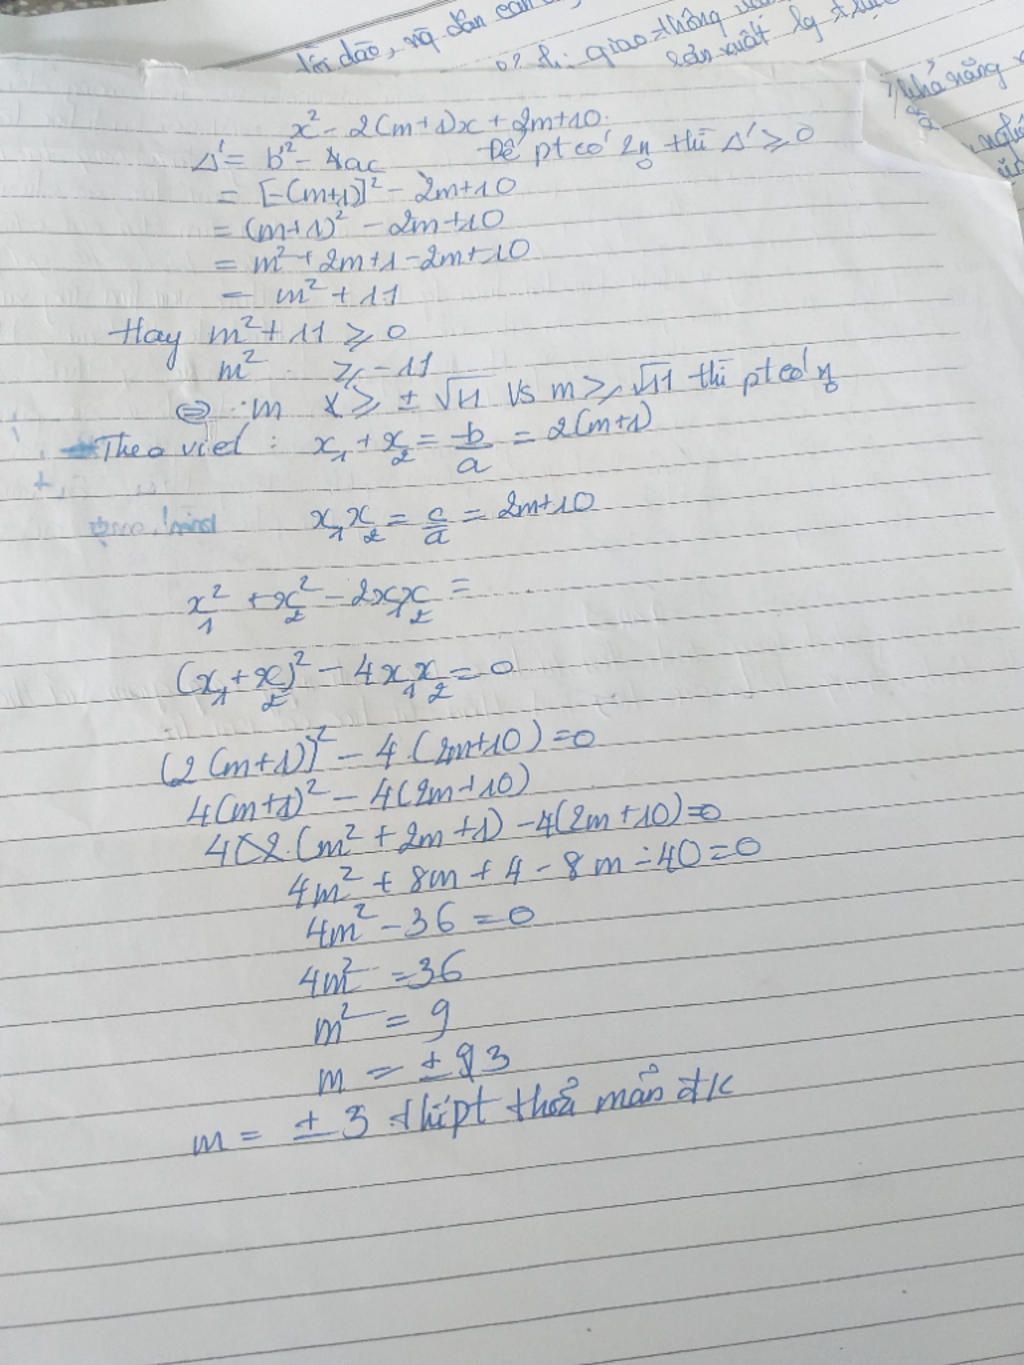 lời dào, vg dân can
o? th: giao thông
sản xuất lg thực
khả năng
x² - 2(m+1)x + 2m+10
Δ' = b² - 4ac Để pt có 2n₀ thì Δ' ≥ 0
= [-(m+1)]² - 2m+10
= (m+1)² - 2m+10
= m² + 2m+1 - 2m+10
= m² + 11
Hay m² + 11 ≥ 0
m² ≥ -11
⇔ m ≥ ± √11 Vs m ≥ √11 thì pt có n₀
Theo viet : x₁ + x₂ = -b/a = 2(m+1)
x₁x₂ = c/a = 2m+10
x₁² + x₂² - 2x₁x₂ =
(x₁+x₂)² - 4x₁x₂ = 0
(2(m+1))² - 4.(2m+10) = 0
4(m+1)² - 4(2m+10)
4(2.(m² + 2m+1) - 4(2m+10) = 0
4m² + 8m + 4 - 8m - 40 = 0
4m² - 36 = 0
4m² = 36
m² = 9
m = ± 3
m = ± 3 thì pt thoả mãn đk